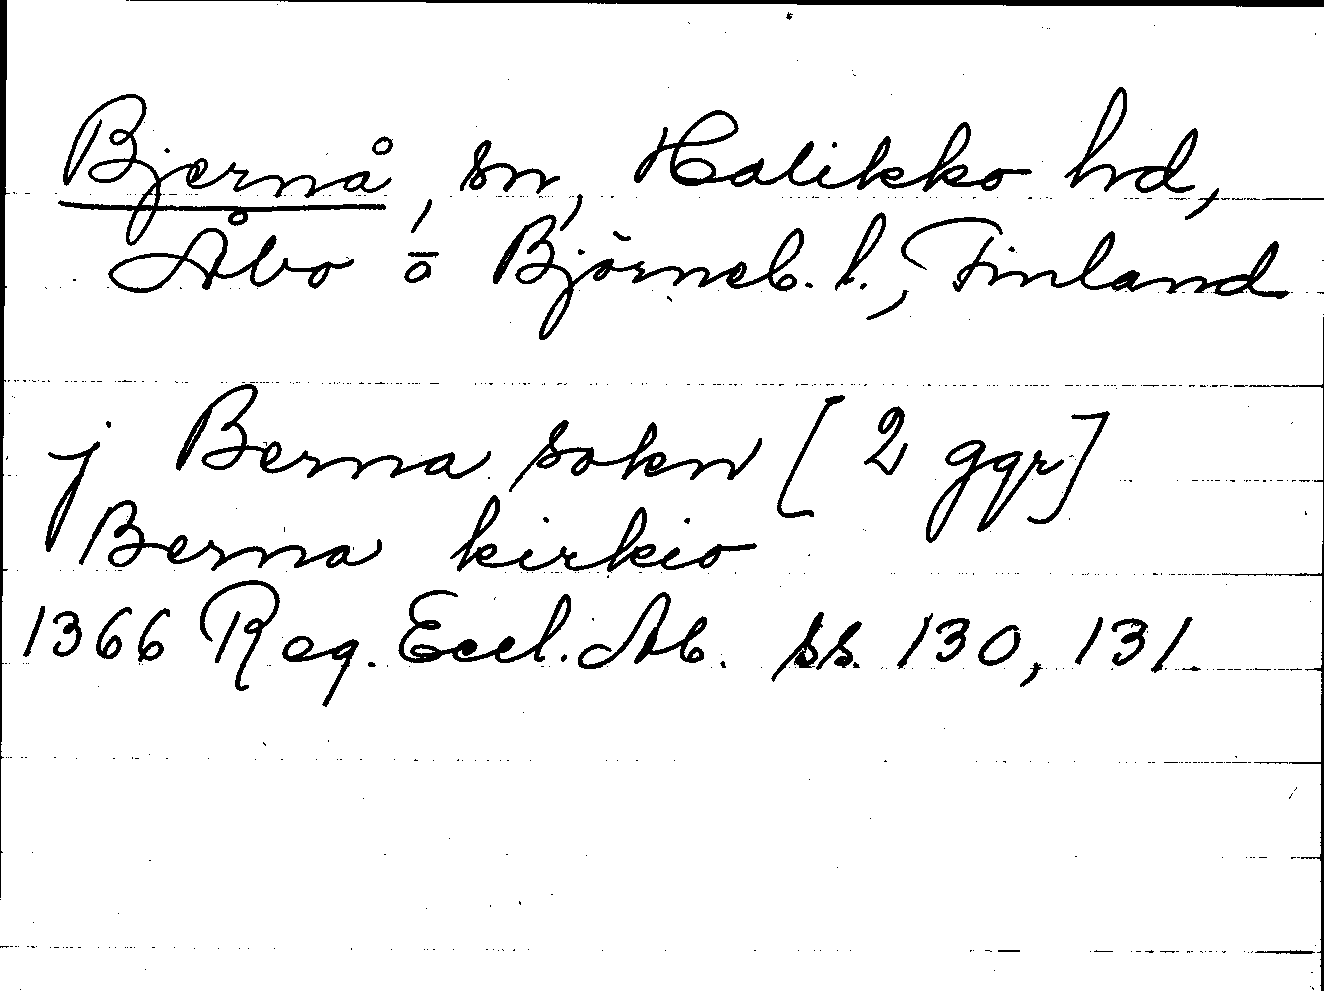 Bjernå, sn, Halikko hd,
Åbo o Björneb. l., Finland
j Berna sokn [2 ggr]
Berna kirkio
1366 Reg. Eccl. Ab. ss. 130, 131.